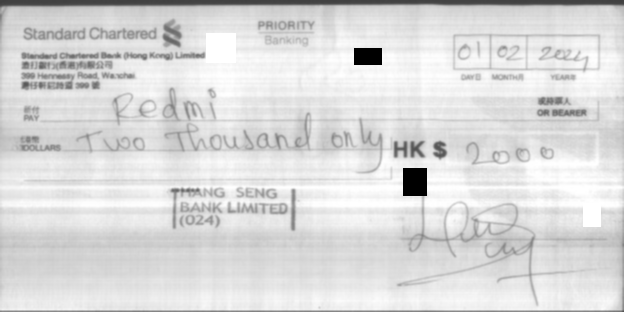 Standard Chartered
PRIORITY
Banking
Standard Chartered Bank (Hong Kong) Limited
渣打銀行(香港)有限公司
399 Hennessy Road, Wanchai.
灣仔軒尼詩道 399 號
01 02 2024
DAY日 MONTH月 YEAR年
祈付
PAY Redmi
或持票人
OR BEARER
港幣
DOLLARS Two Thousand only
HK $ 2000
HANG SENG
BANK LIMITED
(024)